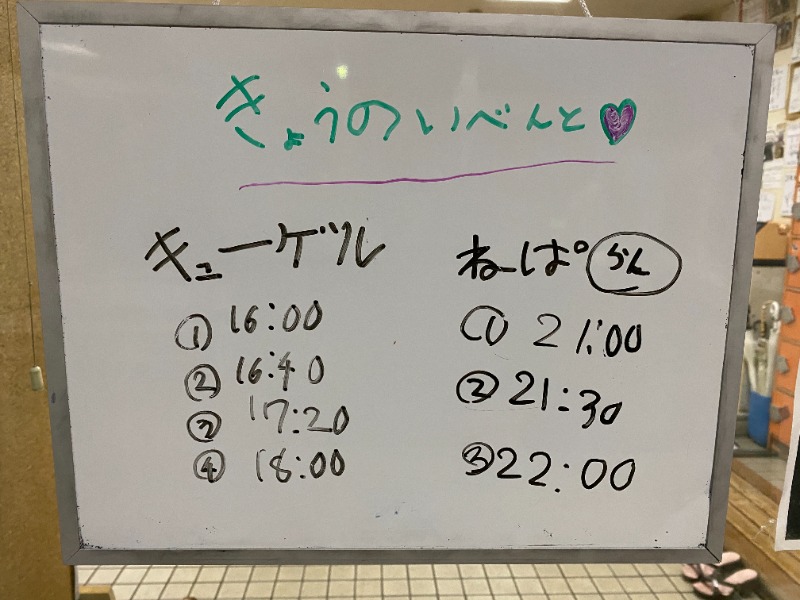 きょうのいべんと
キューゲル
① 16:00
② 16:40
③ 17:20
④ 18:00
ねーぱ らん
① 21:00
② 21:30
③ 22:00